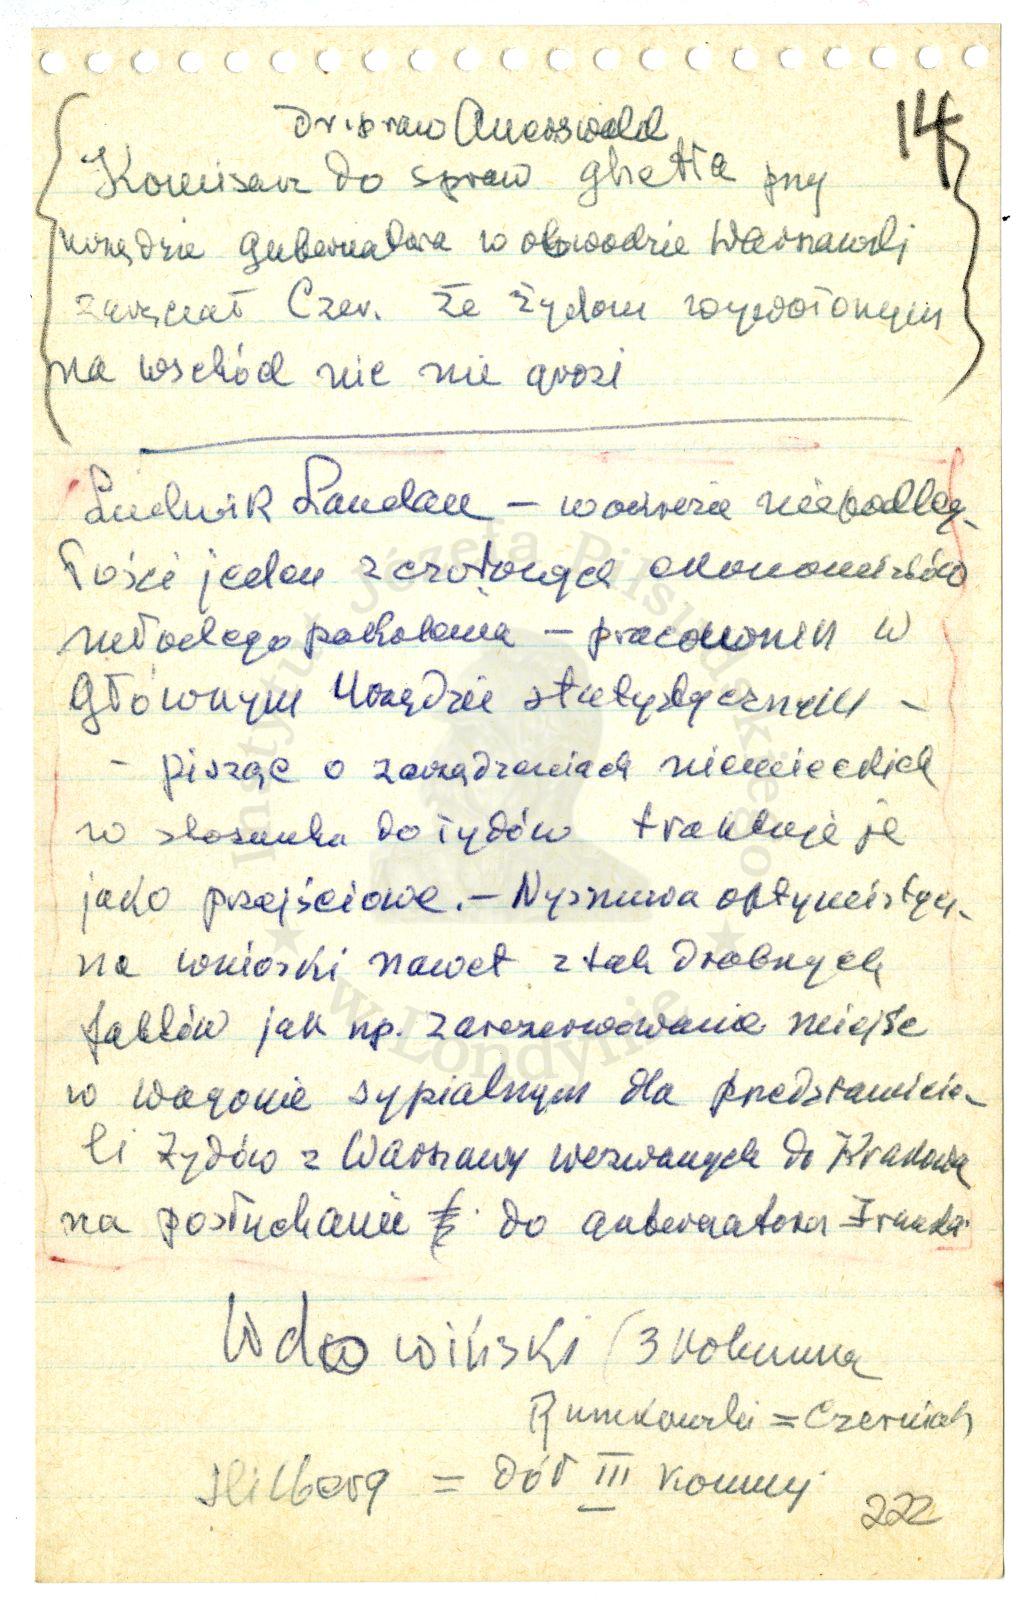 14
dr praw Auerswald
Komisarz do spraw ghetta przy
urzędzie gubernatora w obwodzie Warszawskj
zaręczał Czer. że żydom wywożonym
na wschód nic nie grozi
Ludwik Landau – w okresie niepodleg-
łości jeden z czołowych ekonomistów
młodego pokolenia – pracownik w
Głównym Urzędzie statystycznym –
– pisząc o zarządzeniach niemieckich
w stosunku do żydów traktuje je
jako przejściowe. – Wysnuwa optymistycz-
ne wnioski nawet z tak drobnych
faktów jak np. zarezerwowanie miejsc
w wagonie sypialnym dla przedstawicie-
li żydów z Warszawy wezwanych do Krakowa
na posłuchanie do gubernatora Franka
Wdowiński (3 kolumna
Rumkowski = Czerniak
Hilberg = dół III kolumny
222
Instytut Józefa Piłsudskiego
w Londynie